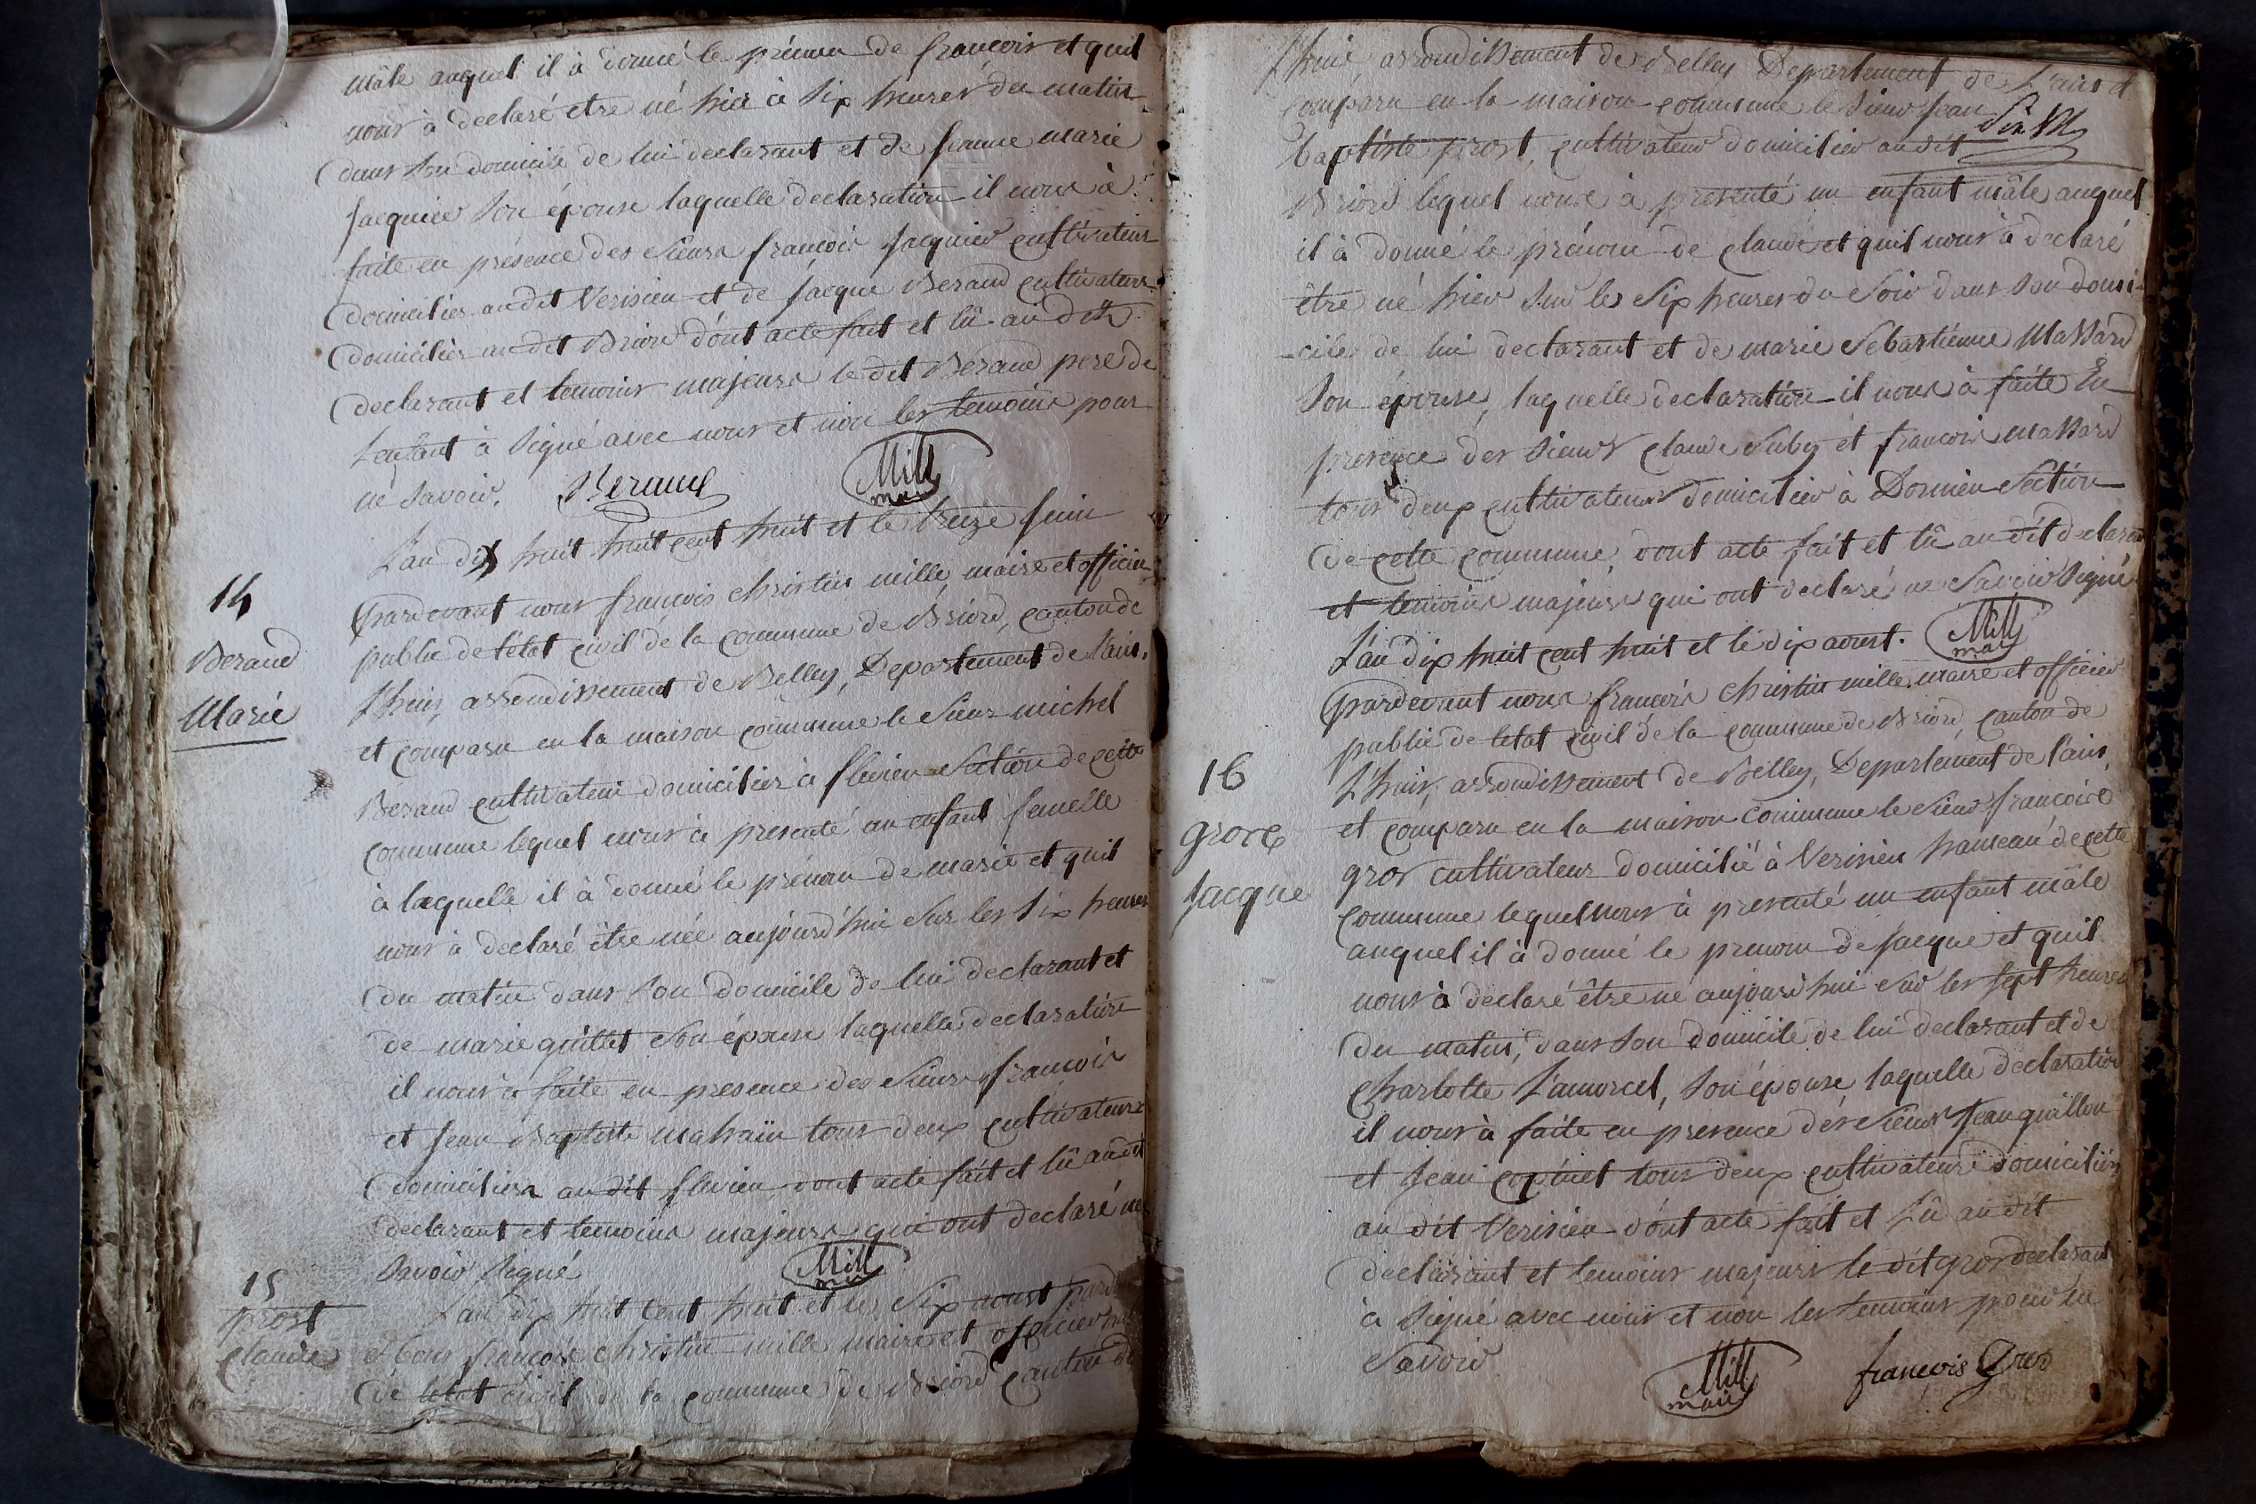 mâle auquel il à donné le prénom de francois et quil
nous à declaré etre né hier à six heures du matin
dans son domicile de lui declarant et de jeanne marie
jacquier son épouse laquelle declaration il nous à
faite en présence des sieurs francois jacquier cultivateur
domicilier audit Verisieu et de jacque Beraud cultivateur
domicilier audit Briord dont acte fait et lû au dit
declarant et temoins majeurs le dit Beraud pere de
Lenfant à signé avec nous et non les temoins pour
ne savoir. Beraud Mill
maire
L'an dix huit huit cent huit et le treize juin
14
pardevant nous françois christin mille maire et officier
Beraud
public de l'état civil de la commune de Briord, canton de
Marie
Lhuis, arrondissement de Belley, Departement de l'ain,
et comparu en la maison commune le sieur michel
Beraud cultivateur domicilier à flevieu section de cette
commune lequel nous à presenté un enfant femelle
à laquelle il à donné le prénom de marie et quil
nous à declaré être née aujourd'hui sur les six heures
du matin dans son domicile de lui declarant et
de marie quillet son épouse laquelle declaration
il nous à faite en presence des sieurs francois
et jean Baptiste mahaüt tous deux cultivateurs
domicilier au dit flevieu, dont acte fait et lû au dit
declarant et temoins majeurs qui ont declaré ne
savoir signé Mill
maire
15
L'an dix huit cent huit et le six aoust pard
prost
claude
nous françois christin mille maire et officier
de letat civil de la commune de Briord canton de
Lhuis, arrondissement de Belley Departement de L'ain et
comparu en la maison commune le sieur jean
baptiste prost, cultivateur domicilier audit
Briord lequel nous à presenté un enfant mâle auquel
il à donné le prénom de claude et quil nous à declaré
être né hier sur les six heures du soir dans son domi-
-cile de lui declarant et de marie Sebastienne Massard
son épouse, laquelle declaration il nous à faite En
presence des sieurs claude Suby et francois massard
tous deux cultivateurs domicilier à Dornieu Section
de cette commune, dont acte fait et lû au dit declarant
et temoins majeurs qui ont declaré ne savoir signé
Mill
maire
L'an dix huit cent huit et le dix aoust.
pardevant nous françois christin mille maire et officier
public de letat civil de la commune de Briord, canton de
16
Lhuis, arrondissement de Belley, Departement de l'ain,
et comparu en la maison commune le sieur françois
gros
gros cultivateur domicilié à Verisieu hameau de cette
jacque
commune lequel nous à presenté un enfant mâle
auquel il à donné le prenom de jacque et quil
nous à declaré être né aujourd'hui sur les sept heures
du matin, dans son domicile de lui declarant et de
charlotte Lamorcel, son épouse, laquelle declaration
il nous à faite en presence des sieurs jean quillon
et jean copinet tous deux cultivateurs domicilier
au dit Verisieu dont acte fait et Lû au dit
declarant et temoins majeurs le dit gros declarant
à signé avec nous et non les temoins pour ne
savoir
Mill
maire
françois Gros